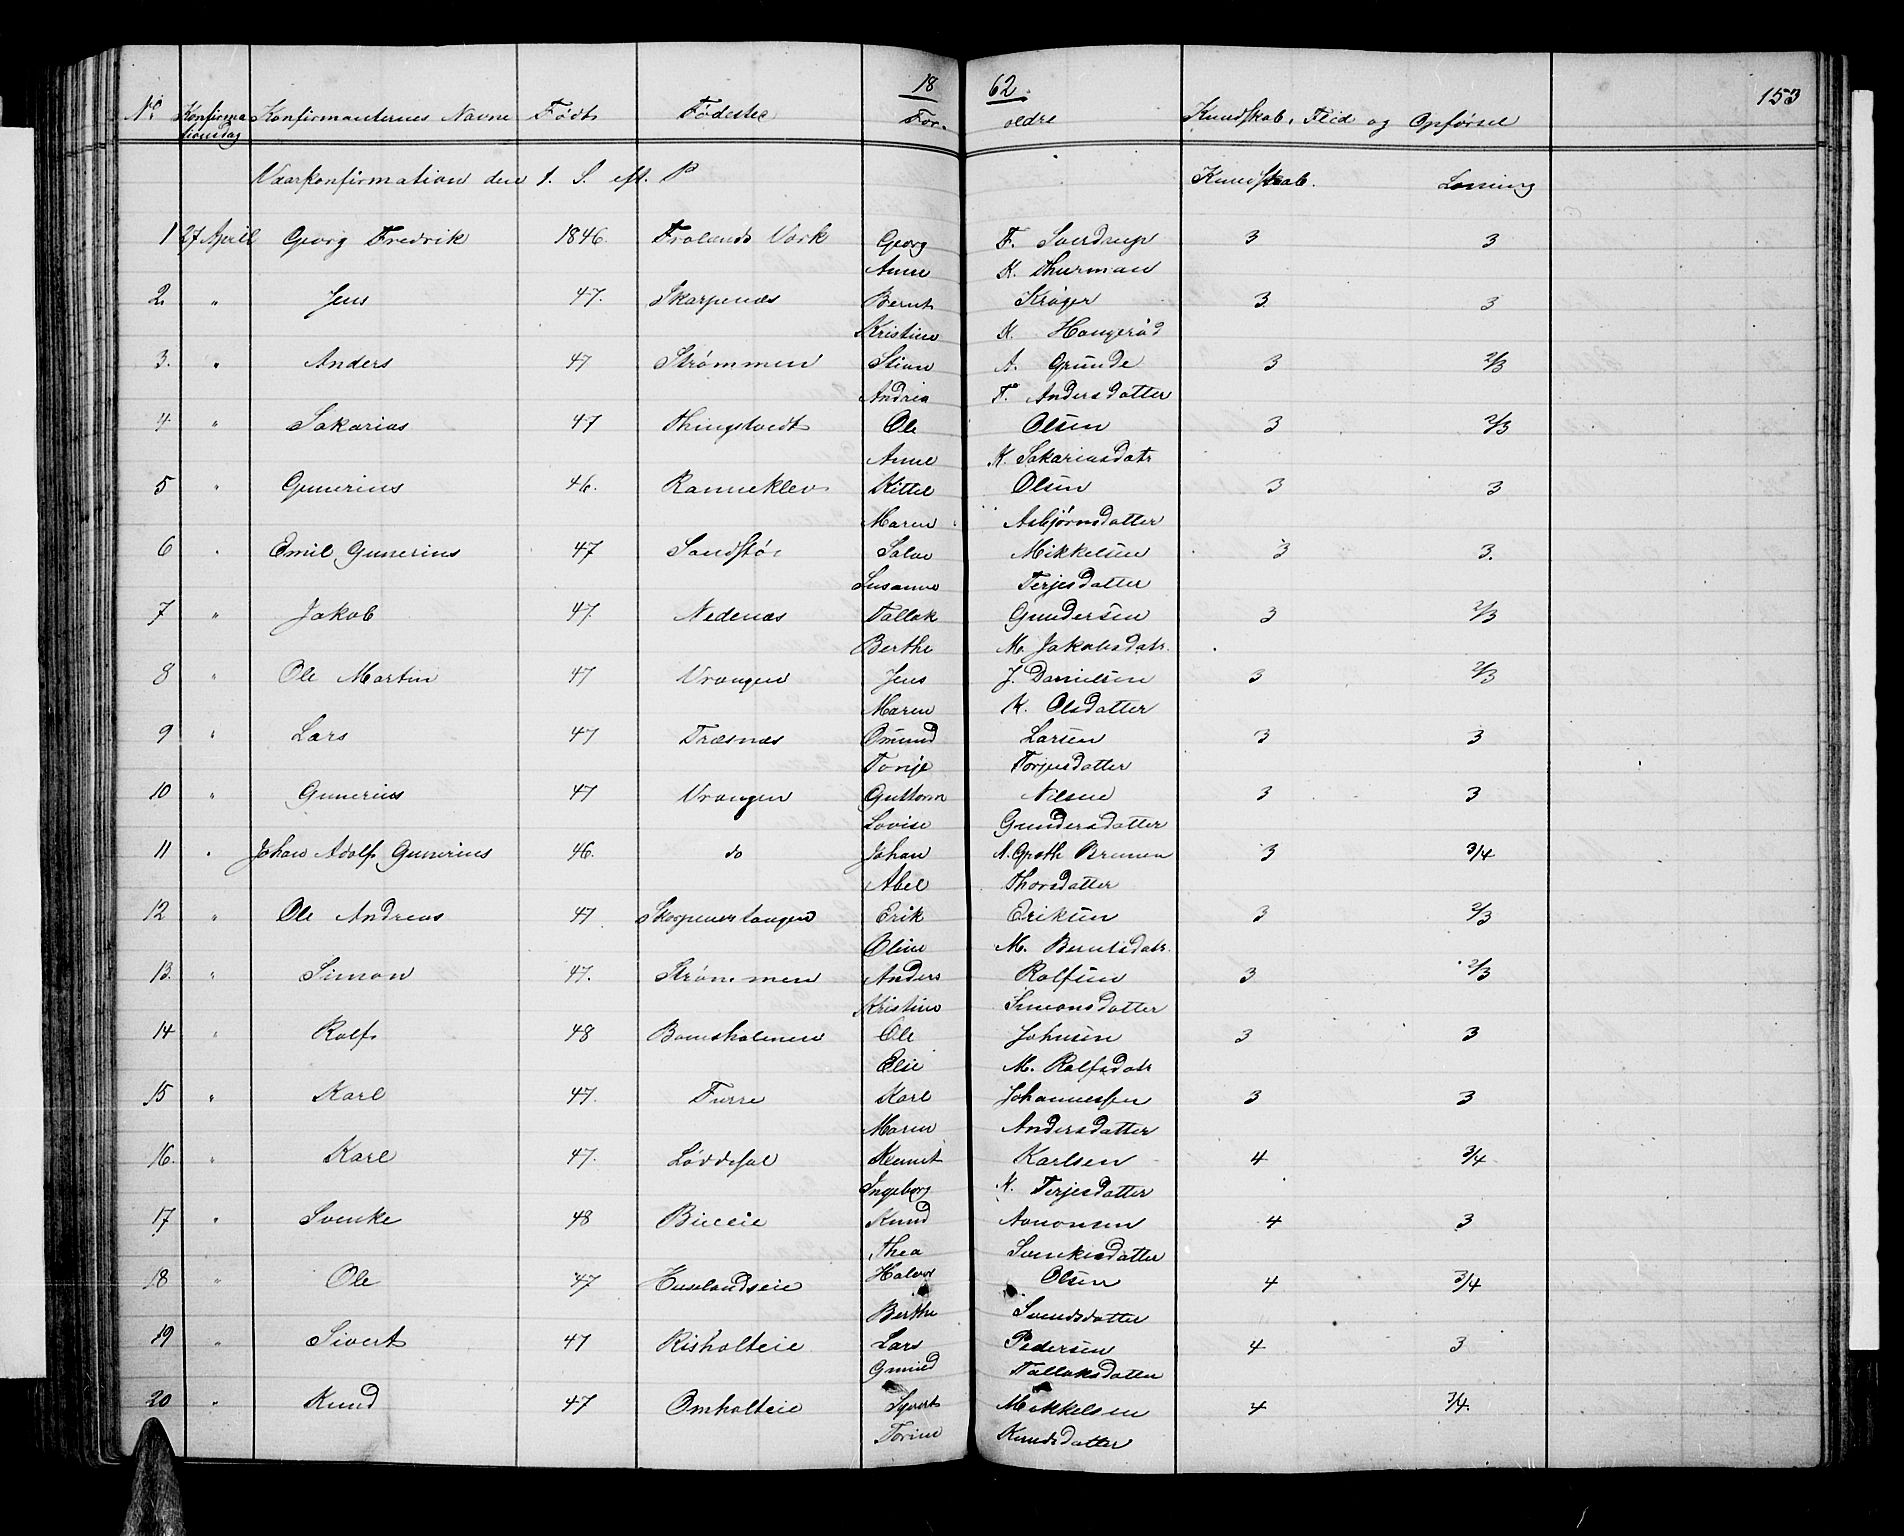 18 62. 153
No. Konfirma Konfirmanternes Navne Født Fødested For- ældre Kundskab, Flid og Opførsel
tionsdag
Vaarkonfirmation den 1. S. eft. P Kundskab. Læsning
1 27 April Georg Fredrik 1846. Frolands Værk Georg F. Sverdrup 3 3
Anne K. Thurman
2. " Jens 47. Skarpenæs Bernt Krøger 3 3
Kristine K.
3. " Anders 47 Strømmen Stian A. Grunde 3 2/3
Andrea F. Andersdatter
4. " Sakarias 47 Thingstvedt Ole Olsen 3 2/3
Anne K. Sakariasdatr
5 " Gunerius 46. Ranneklev Kittel Olsen 3 3
Maren Asbjørnsdatter
6 " Emil Gunerius 47 Sandstø Salve Mikkelsen 3 3.
Susanne Terjesdatter
7 " Jakob 47. Nedenæs Tallak Gundersen 3 2/3
Berthe M. Jakobsdatr.
8 " Ole Martin 47 Vrangen Jens J. Danielsen 3 2/3
Maren K. Olsdatter
9 " Lars 47 Træsnæs Omund Larsen 3 3
Tonje Torjusdatter
10 " Gunerius 47 Vrangen Guttorm Nilsen 3 3
Lovise Gundersdatter
11 " Johan Adolf Gunerius 46. do Johan N. Groth Bruun 3 3/4
Abel Thorsdatter
12 " Ole Andreas 47 Erik Eriksen 3 2/3
Oline M. Berntsdatr.
13. " Simon 47. Strømmen Anders Rolfsen 3 2/3
Kristine Simonsdatter
14 " Rolf 48 Bomsholmen Ole Johnsen 3 3
Elie M. Rolfsdatr
15 " Karl 47. Furre Karl Johannessen 3 3
Maren Andersdatter
16. " Karl 47. Løddesøl Karlsen 4 3/4
Ingeborg K. Terjesdatter
17 " Svenke 48 Bieeie Knud Aanonsen 4 3
Thea Svenkesdatter
18 " Ole 47 Huslandseie Halvor Olsen 4 3/4
Berthe Svendsdatter
19 " Sivert 47 Risholteie Lars Pedersen 4 3
Gunild Tallaksdatter
20 " Knud 47 Omholteie Syvert Mikkelsen 4 3/4.
Torine Knudsdatter